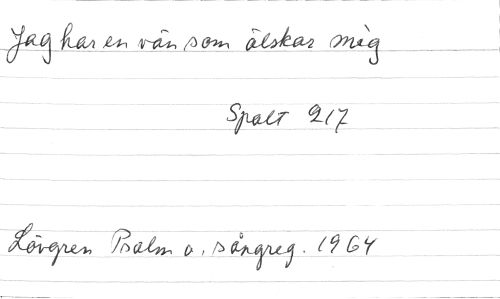 Jag har en vän som älskar mig
Spalt 217
Lövgren Psalm o. sångreg. 1964